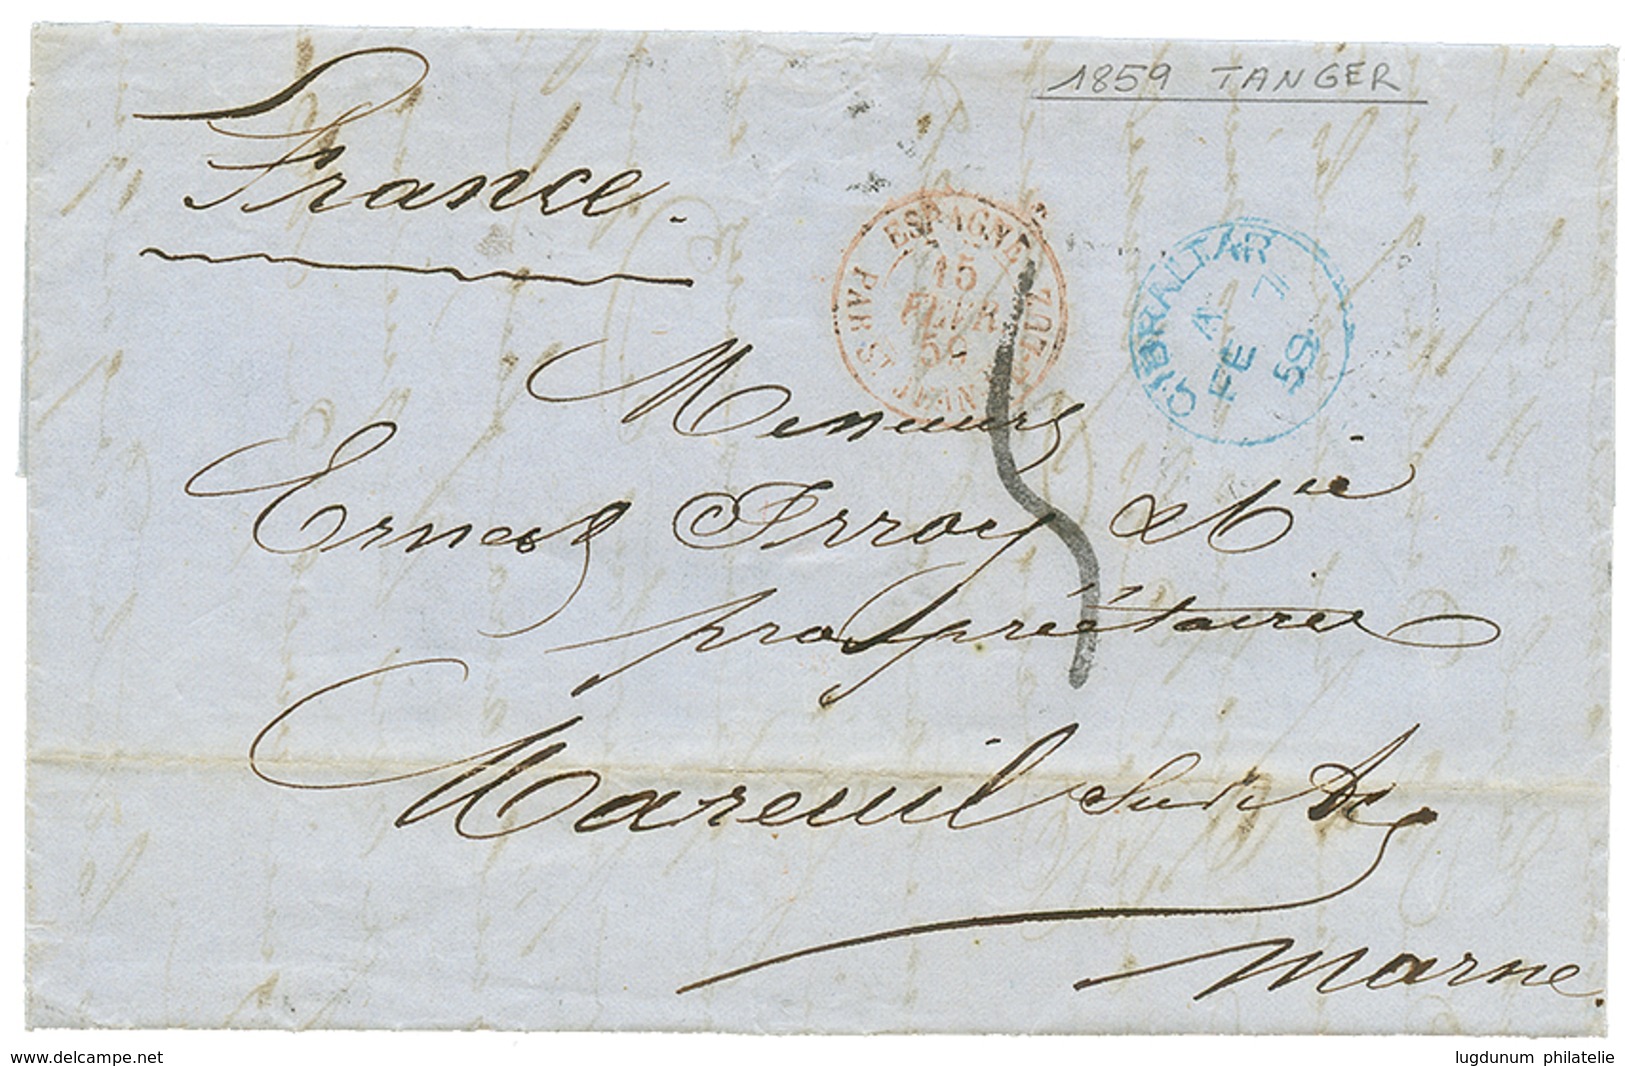 1859 TANGER
France.
ESPAGNE
15
FEVR
59
PAR ST JEAN DE LUZ 2
GIBRALTAR
A 7
FE
59
5
Messieurs
Ernest Irroy & Cie
propriétaires
Mareuil Sur Ay
Marne.
www.delcampe.net
lugdunum philatelie